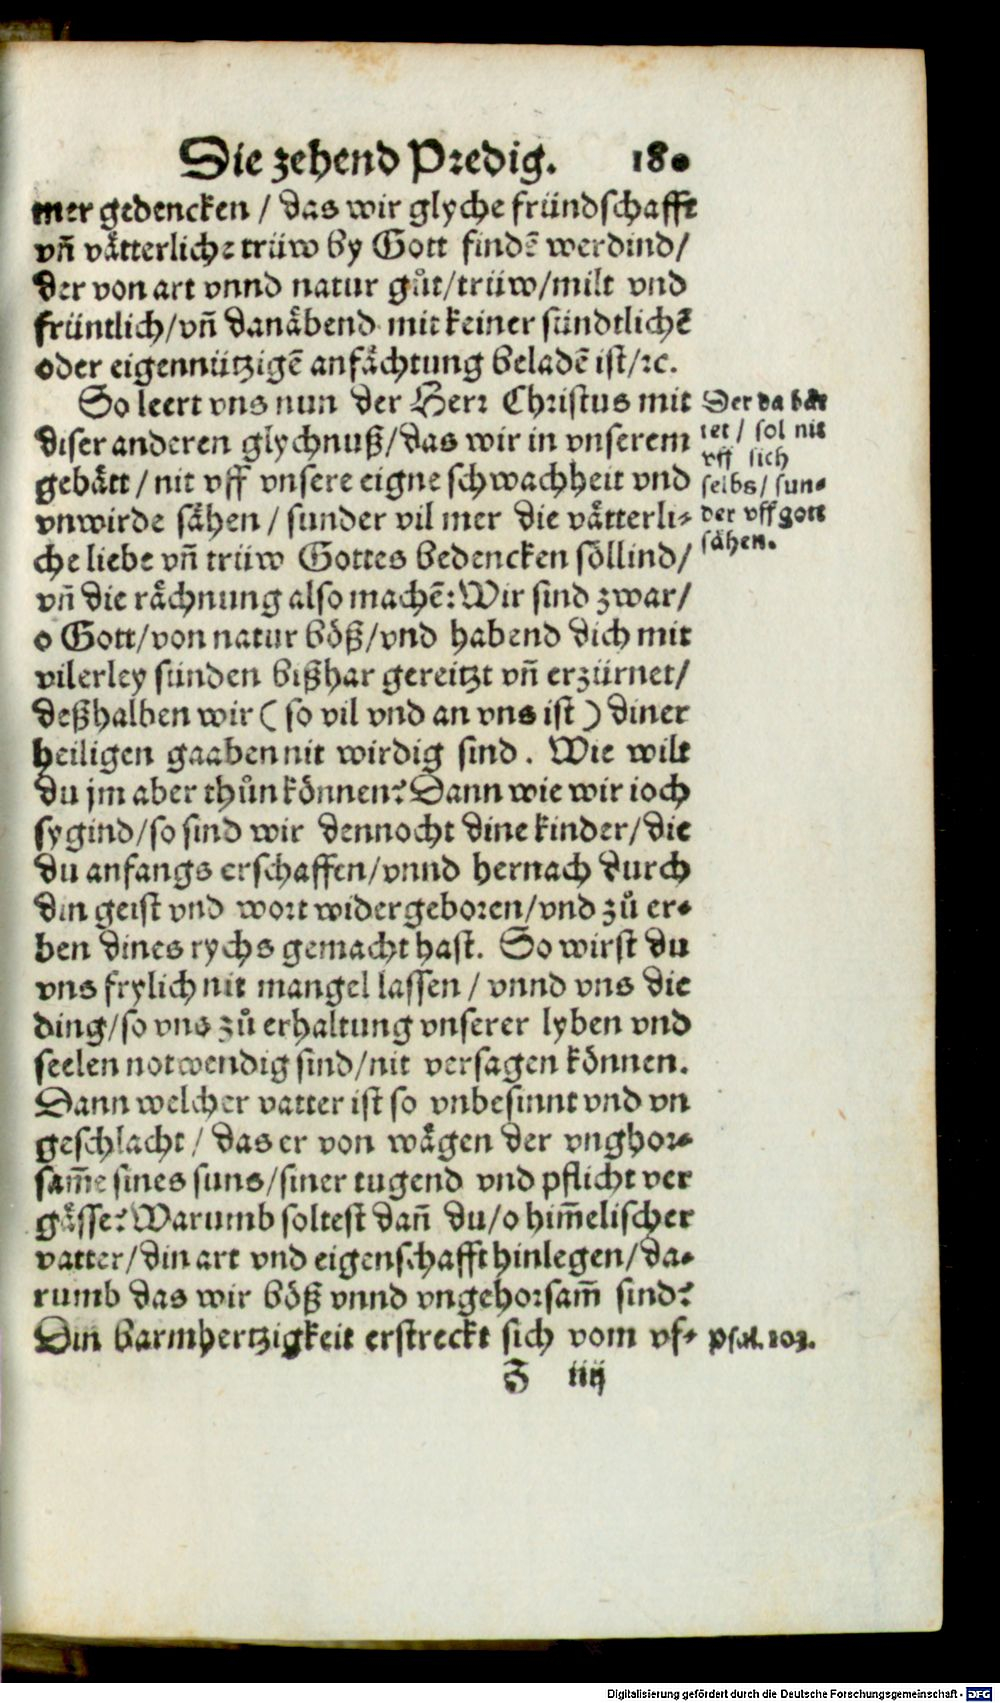 Die zehend Predig. 180
mer gedencken / das wir glyche fründschafft
vñ vätterliche trüw by Gott findē werdind/
der von art vnnd natur gůt/trüw/milt vnd
früntlich/vñ danäbend mit keiner sündtlichē
oder eigennützigē anfächtung beladē ist/ꝛc.
So leert vns nun der Herr Christus mit
diser anderen glychnuß/das wir in vnserem
gebätt / nit vff vnsere eigne schwachheit vnd
vnwirde sähen / sunder vil mer die vätterli-
che liebe vñ trüw Gottes bedencken söllind/
vñ die rächnung also machē: Wir sind zwar/
o Gott/von natur böß/vnd habend dich mit
vilerley sünden bißhar gereitzt vñ erzürnet/
deßhalben wir ( so vil vnd an vns ist ) diner
heiligen gaaben nit wirdig sind. Wie wilt
du jm aber thůn können? Dann wie wir ioch
sygind/so sind wir dennocht dine kinder/die
du anfangs erschaffen/vnnd hernach durch
din geist vnd wort widergeboren/vnd zů er-
ben dines rychs gemacht hast. So wirst du
vns frylich nit mangel lassen / vnnd vns die
ding/so vns zů erhaltung vnserer lyben vnd
seelen notwendig sind/nit versagen können.
Dann welcher vatter ist so vnbesinnt vnd vn
geschlacht / das er von wägen der vnghor-
sam̄e sines suns/siner tugend vnd pflicht ver
gässe? Warumb soltest dañ du/o him̄elischer
vatter/din art vnd eigenschafft hinlegen/da-
rumb das wir böß vnnd vngehorsam̄ sind?
Din barmhertzigkeit erstreckt sich vom vf-
Z iiij
Der da bät
tet / sol nit
vff sich
selbs/ sun-
der vff gott
sähen.
Psal. 103.
Digitalisierung gefördert durch die Deutsche Forschungsgemeinschaft - DFG